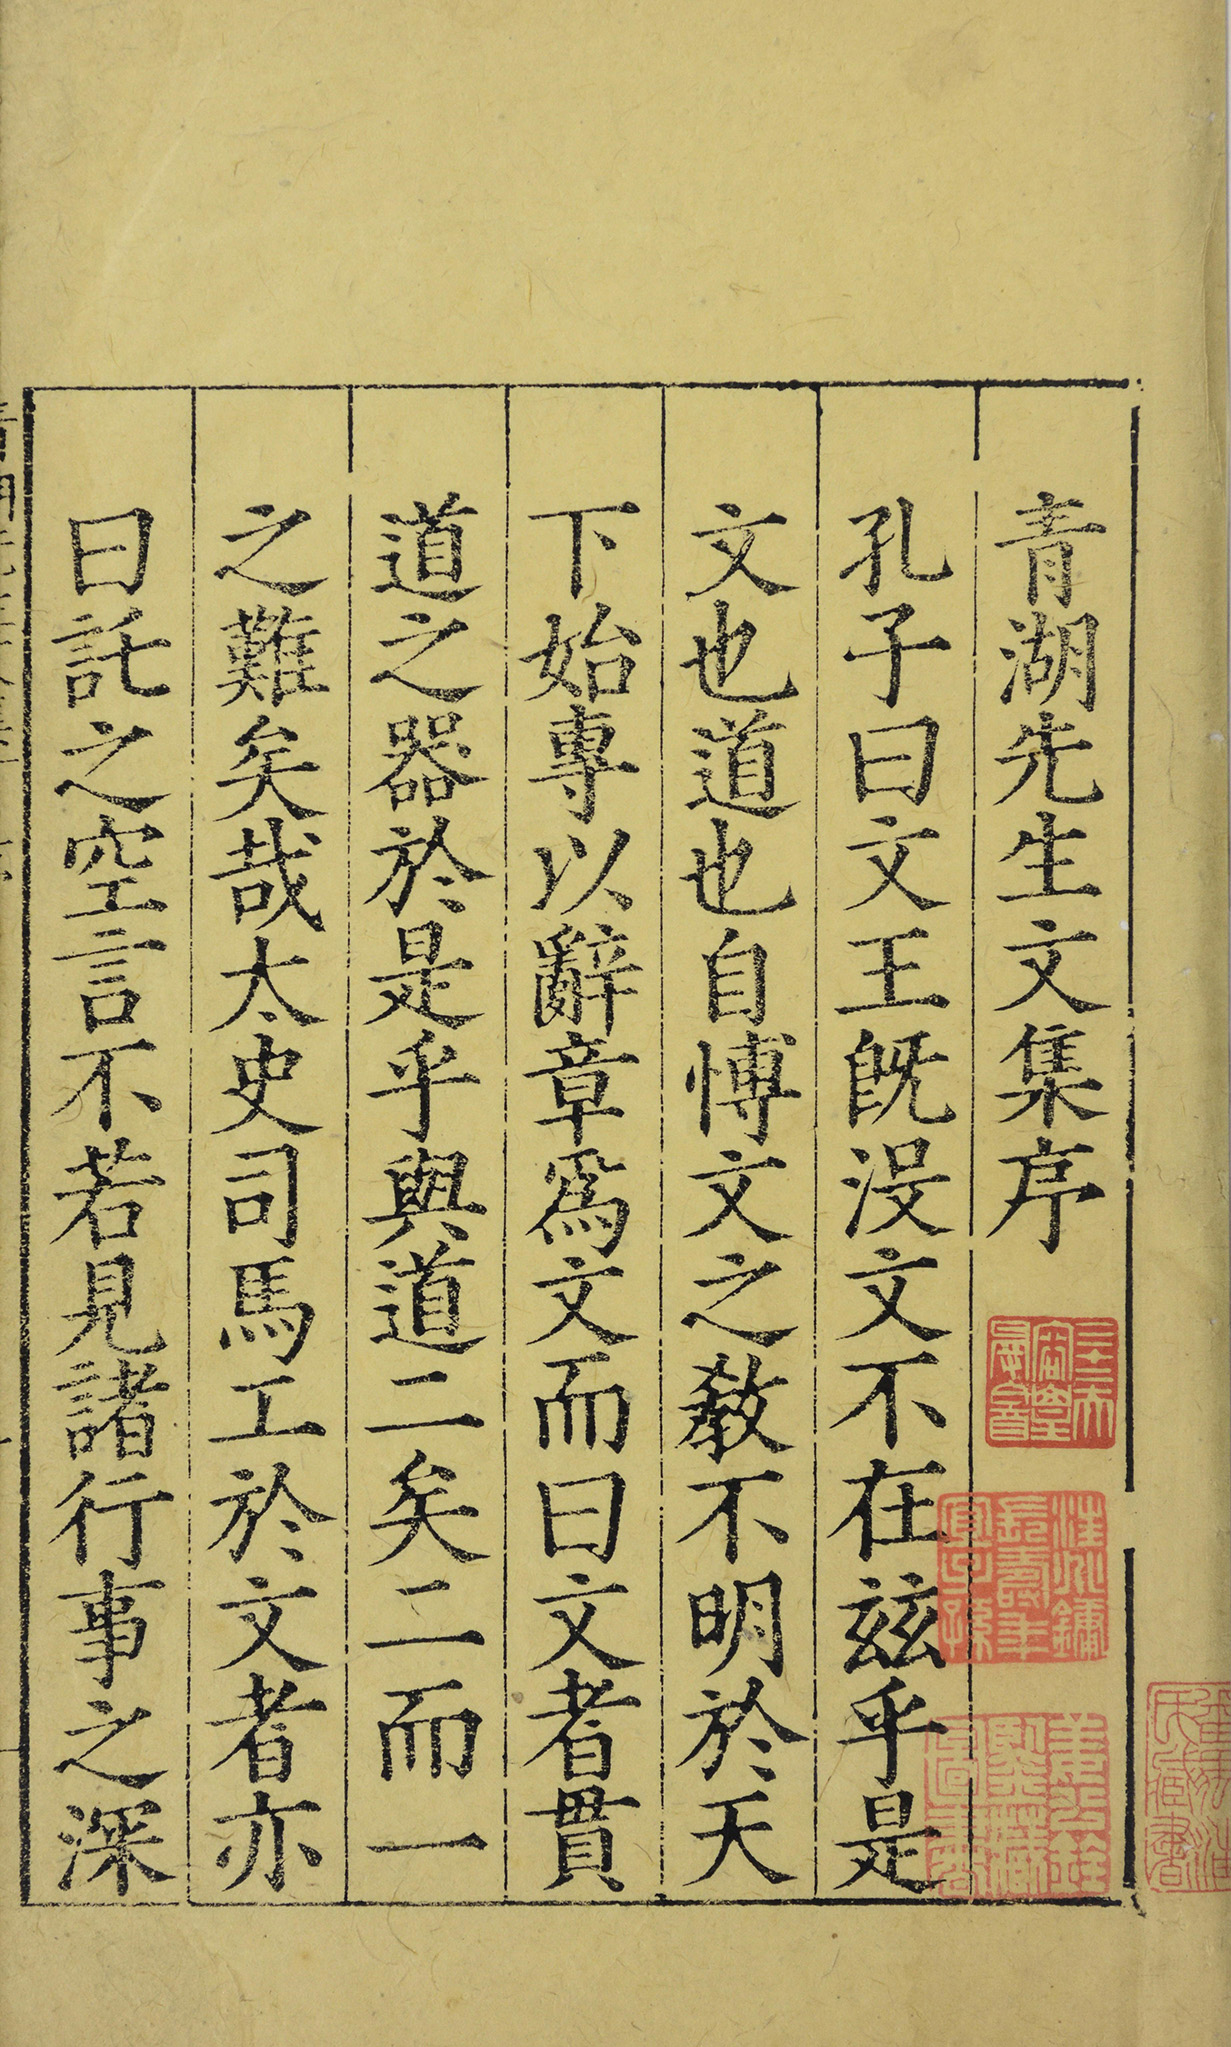 青湖先生文集序
孔子曰文王旣没文不在玆乎是
文也道也自愽文之敎不明於天
下始專以辭章爲文而曰文者貫
道之器於是乎與道二矣二而一
之難矣哉太史司馬工於文者亦
曰託之空言不若見諸行事之深